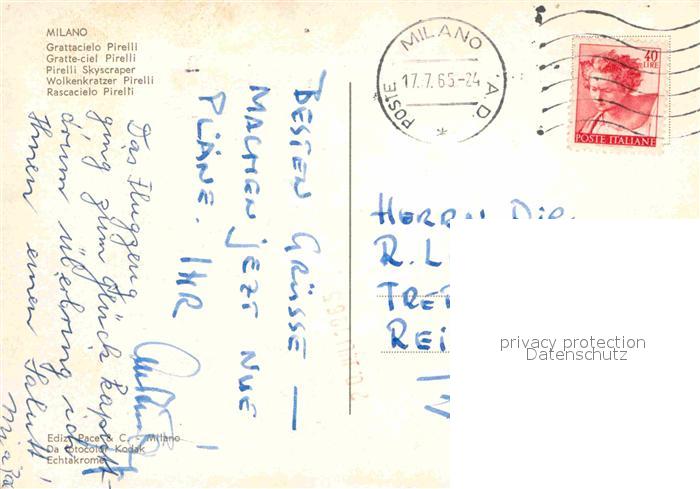 MILANO
Grattacielo Pirelli
Gratte-ciel Pirelli
Pirelli Skyscraper
Wolkenkratzer Pirelli
Rascacielo Pirelli
MILANO
17.7.65-24
POSTE A.D.
40
LIRE
POSTE ITALIANE
BESTEN GRÜSSE —
MACHEN JEZT NUE
PLÄNE. IHR
Das Flugzeug
ging zum Glück kaputt -
drum überbring ich
Ihnen einen Salut!
HERRN DIR.
R. L
TRE
REI
privacy protection
Datenschutz
Ediz. Pace & C. - Milano
Da fotocolor Kodak
Echtakrome